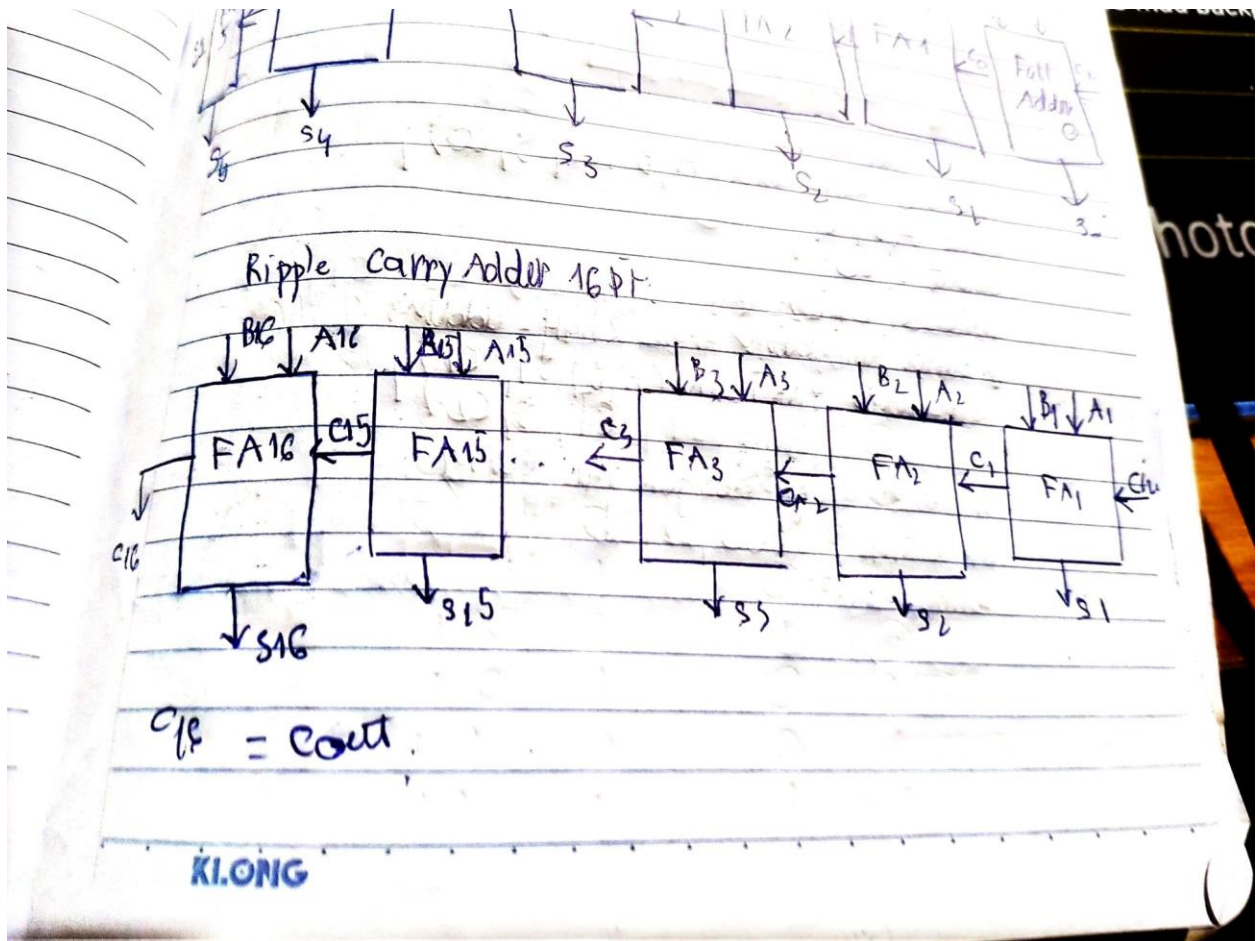 FA2 FA1 C0 Full
Adder
0
S4 S3 S2 S1
Ripple Carry Adder 16 bit
B16 A16 B15 A15 B3 A3 B2 A2 B1 A1
FA16 C15 FA15 ... C3 FA3 C2 FA2 C1 FA1 Cin
C16
S16 S15 S3 S2 S1
C16 = Cout.
KLONG